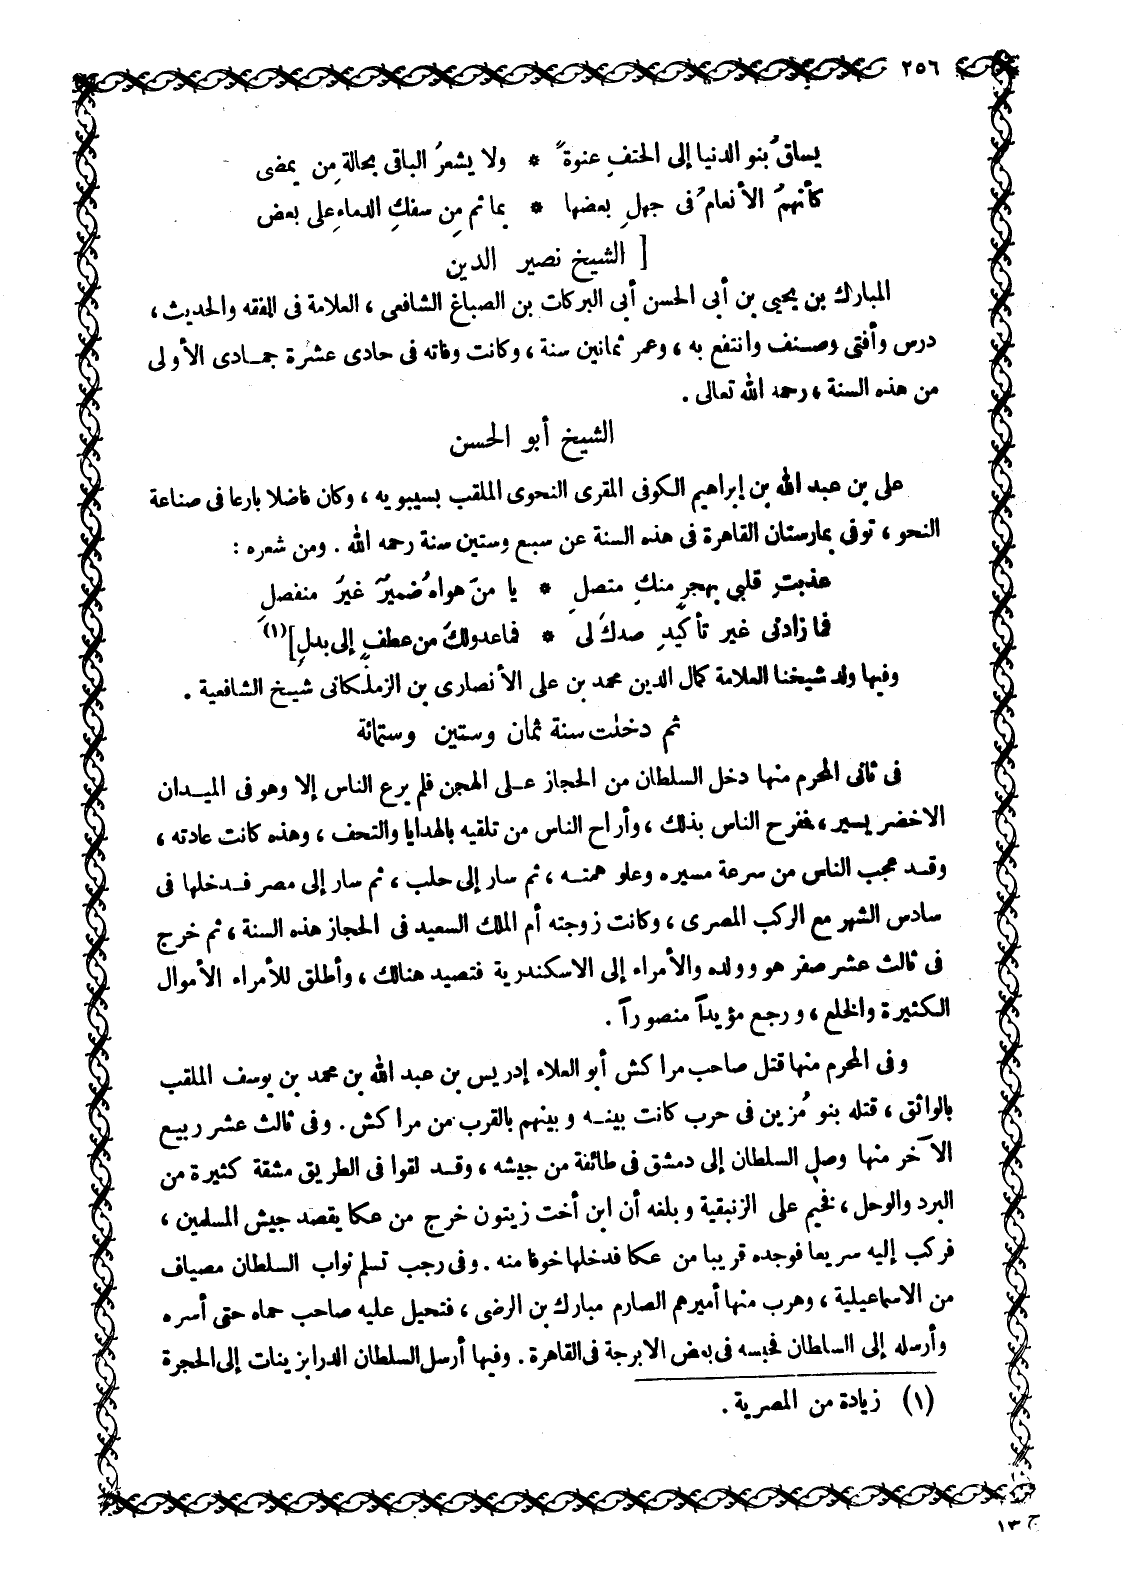 ٢٥٦
يساقُ بنو الدنيا إلى الحتفِ عنوةً * ولا يشعرُ الباقى بحالةِ من يمضى
كأنهمُ الأنعامُ فى جهلِ بعضها * بما تم من سفكِ الدماءِ على بعض
[ الشيخ نصير الدين
المبارك بن يحيى بن أبى الحسن أبى البركات بن الصباغ الشافعى ، العلامة فى الفقه والحديث ،
درس وأفتى وصنف وانتفع به ، وعمر ثمانين سنة ، وكانت وفاته فى حادى عشرة جمادى الأولى
من هذه السنة ، رحمه الله تعالى .
الشيخ أبو الحسن
على بن عبد الله بن إبراهيم الكوفى المقرى النحوى الملقب بسيبويه ، وكان فاضلا بارعا فى صناعة
النحو ، توفى بمارستان القاهرة فى هذه السنة عن سبع وستين سنة رحمه الله . ومن شعره :
عذبت قلبى بهجرٍ منكِ متصلِ * يا من هواهُ ضميرٌ غيرَ منفصلِ
فما زادنى غير تأكيدِ صدكَ لى * فما عدولكَ من عطفٍ إلى بدلِ](١)
وفيها ولد شيخنا العلامة كمال الدين محمد بن على الأنصارى بن الزملكانى شيخ الشافعية .
ثم دخلت سنة ثمان وستين وستمائة
فى ثانى المحرم منها دخل السلطان من الحجاز على الهجن فلم يرع الناس إلا وهو فى الميدان
الاخضر يسير ، ففرح الناس بذلك ، وأراح الناس من تلقيه بالهدايا والتحف ، وهذه كانت عادته ،
وقد عجب الناس من سرعة مسيره وعلو همته ، ثم سار إلى حلب ، ثم سار إلى مصر فدخلها فى
سادس الشهر مع الركب المصرى ، وكانت زوجته أم الملك السعيد فى الحجاز هذه السنة ، ثم خرج
فى ثالث عشر صفر هو وولده والأمراء إلى الاسكندرية فتصيد هنالك ، وأطلق للأمراء الأموال
الكثيرة والخلع ، ورجع مؤيداً منصوراً .
وفى المحرم منها قتل صاحب مراكش أبو العلاء إدريس بن عبد الله بن محمد بن يوسف الملقب
بالواثق ، قتله بنو مُزين فى حرب كانت بينه وبينهم بالقرب من مراكش . وفى ثالث عشر ربيع
الآخر منها وصل السلطان إلى دمشق فى طائفة من جيشه ، وقد لقوا فى الطريق مشقة كثيرة من
البرد والوحل ، فخيم على الزنبقية وبلغه أن ابن أخت زيتون خرج من عكا يقصد جيش المسلمين ،
فركب إليه سريعا فوجده قريبا من عكا فدخلها خوفا منه . وفى رجب تسلم نواب السلطان مصياف
من الاسماعيلية ، وهرب منها أميرهم الصارم مبارك بن الرضى ، فتحيل عليه صاحب حماه حتى أسره
وأرسله إلى السلطان فحبسه فى بعض الابرجة فى القاهرة . وفيها أرسل السلطان الدرابزينات إلى الحجرة
(١) زيادة من المصرية .
ج ١٣